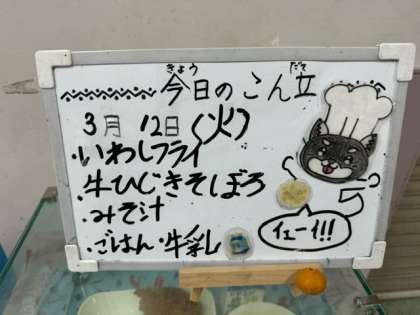 きょう だて
今日のこん立
3月 12日 (火)
・いわしフライ
・牛ひじきそぼろ
・みそ汁
・ごはん・牛乳
イェーイ!!